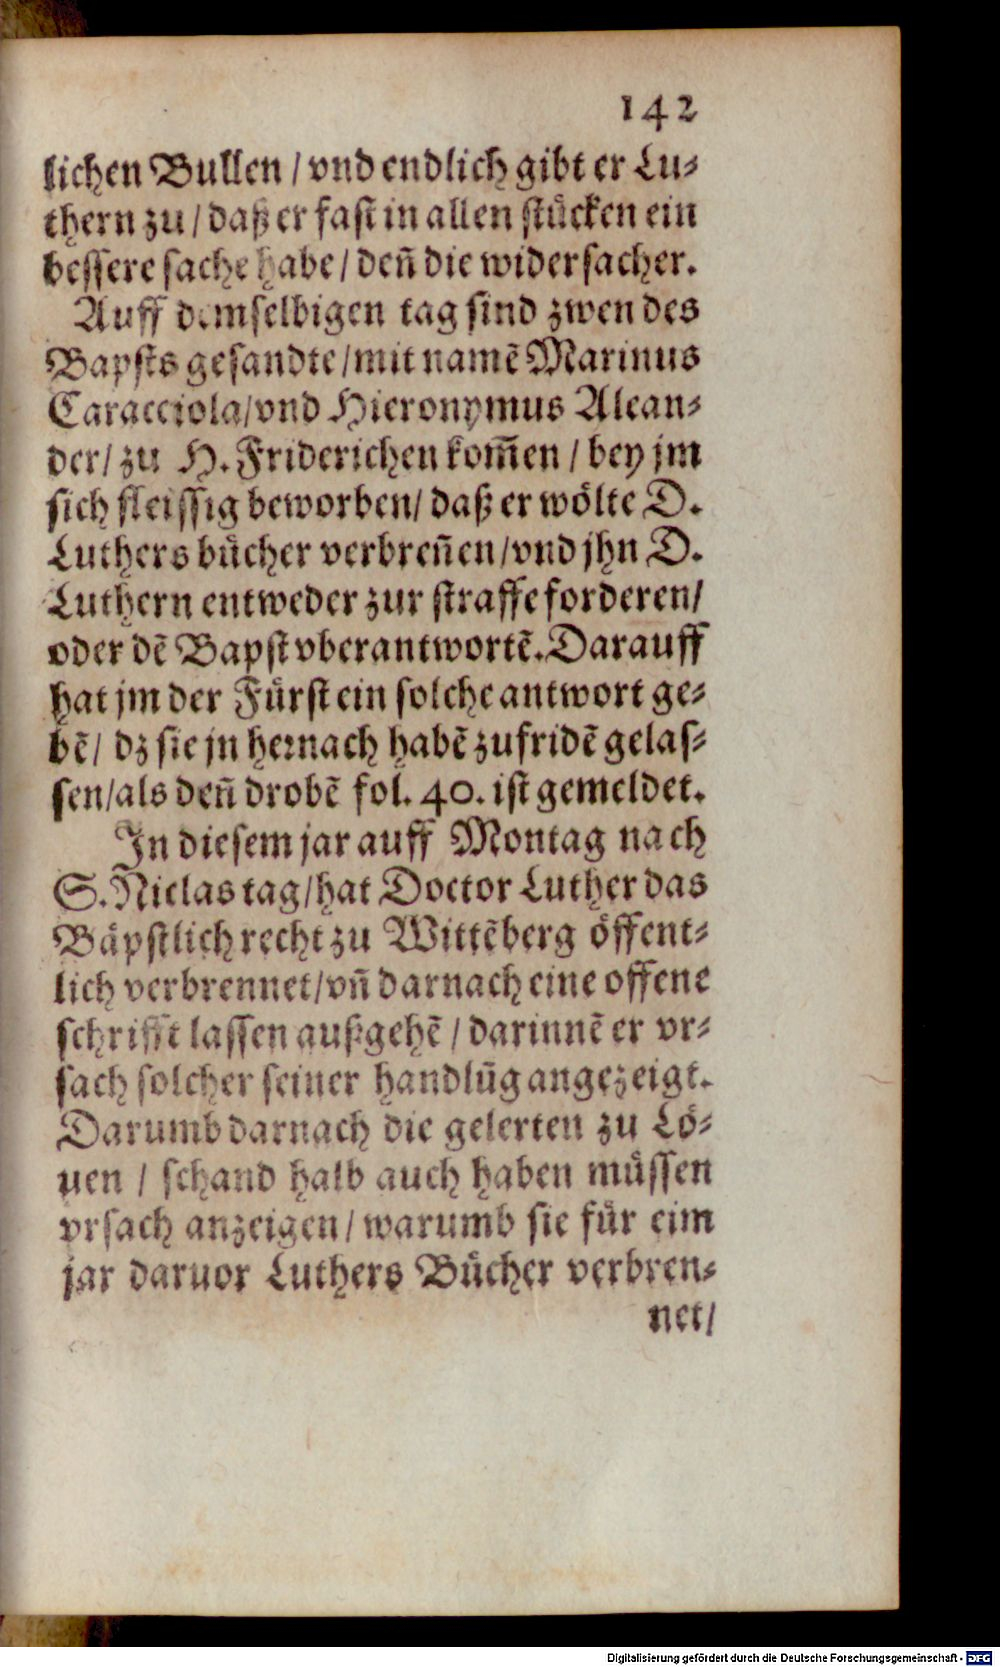 142
lichen Bullen / vnd endlich gibt er Lu⸗
thern zu / daß er fast in allen stücken ein
bessere sache habe / den̄ die widersacher.
Auff demselbigen tag sind zwen des
Bapsts gesandte / mit namē Marinus
Caracciola / vnd Hieronymus Alean⸗
der / zu H. Friderichen kom̄en / bey jm
sich fleissig beworben / daß er wölte D.
Luthers bücher verbren̄en / vnd jhn D.
Luthern entweder zur straffe forderen /
oder dē Bapst vberantwortē. Darauff
hat jm der Fürst ein solche antwort ge⸗
bē / dz sie jn hernach habē zufridē gelas⸗
sen / als den̄ drobē fol. 40. ist gemeldet.
In diesem jar auff Montag nach
S. Niclas tag / hat Doctor Luther das
Bäpstlich recht zu Wittēberg öffent⸗
lich verbrennet / vn̄ darnach eine offene
schrifft lassen außgehē / darinnē er vr⸗
sach solcher seiner handlūg angezeigt.
Darumb darnach die gelerten zu Lö⸗
uen / schand halb auch haben müssen
vrsach anzeigen / warumb sie für eim
jar daruor Luthers Bücher verbren⸗
net /
Digitalisierung gefördert durch die Deutsche Forschungsgemeinschaft - DFG